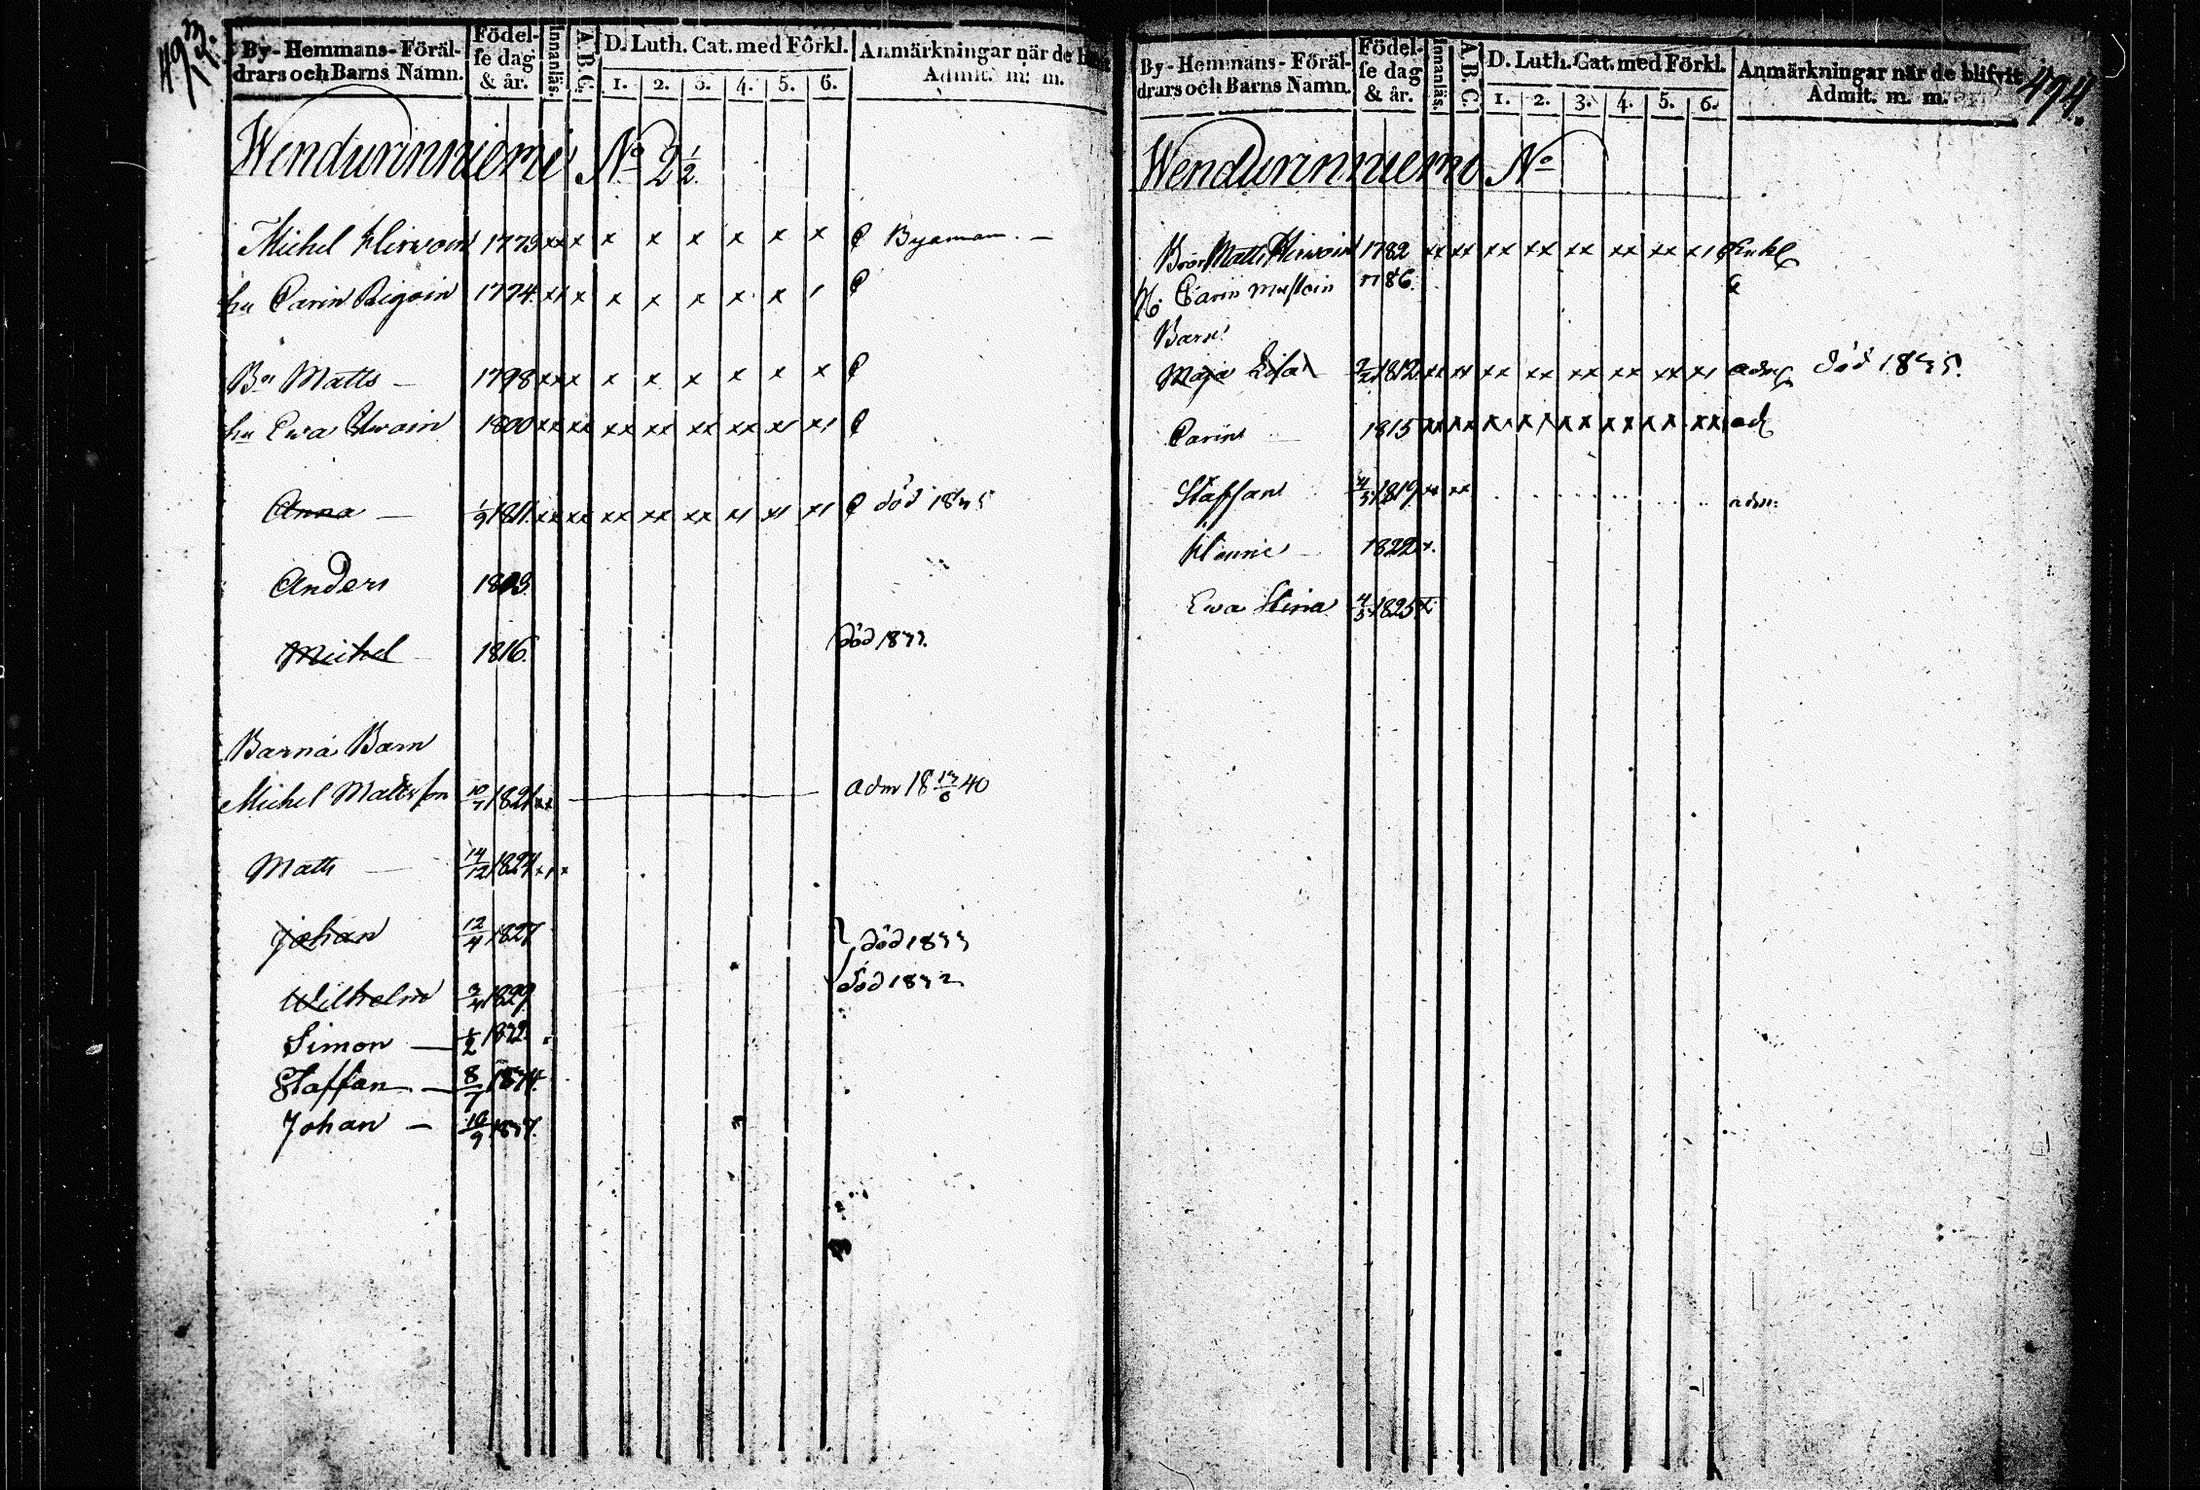 493.
By-Hemmans-Föräl-
drars och Barns Namn.
Födel-
se dag
& år.
Innanläs.
A.B.C.
D. Luth. Cat. med Förkl.
1. 2. 3. 4. 5. 6.
Anmärkningar när de
Admit. m. m.
Wendurinniemi No 2 1/2.
Michel 1773 xx x x x x x x x Byaman. —
hu Carin 1774 xx x x x x x x
Bn Matts — 1798 xx x x x x x x x
hu Ewa 1800 xx xx xx xx xx xx x x
Anna — 1/9 1811. xx xx xx xx xx död 1835
Anders
Michel 1816. död 1833.
Barna Barn
Michel Mattsson 10/7 1821 xx adm 18 13/6 40
Matts — 14/12 1824
Johan 12/4 1827 död 1833
Wilhelm 1829 död 1832
Simon — 1/2 1832.
Staffan — 8/7 1834.
Johan — 10/9 1837.
494.
By-Hemmans-Föräl-
drars och Barns Namn.
Födel-
se dag
& år.
Innanläs.
A.B.C.
D. Luth. Cat. med Förkl.
1. 2. 3. 4. 5. 6.
Anmärkningar när de blifvit
Admit. m. m.
Wendurinniemi No
Bror Matts 1782 xx xx xx xx xx xx xx
H. Carin 1786.
Barn:
Maja Lisa 1812 xx xx xx xx xx xx xx död 1835.
Carin — 1815 xx xx
Staffan 4/5 1819. xx xx adm:
1822 x.
Ewa Stina 4/5 1825 x